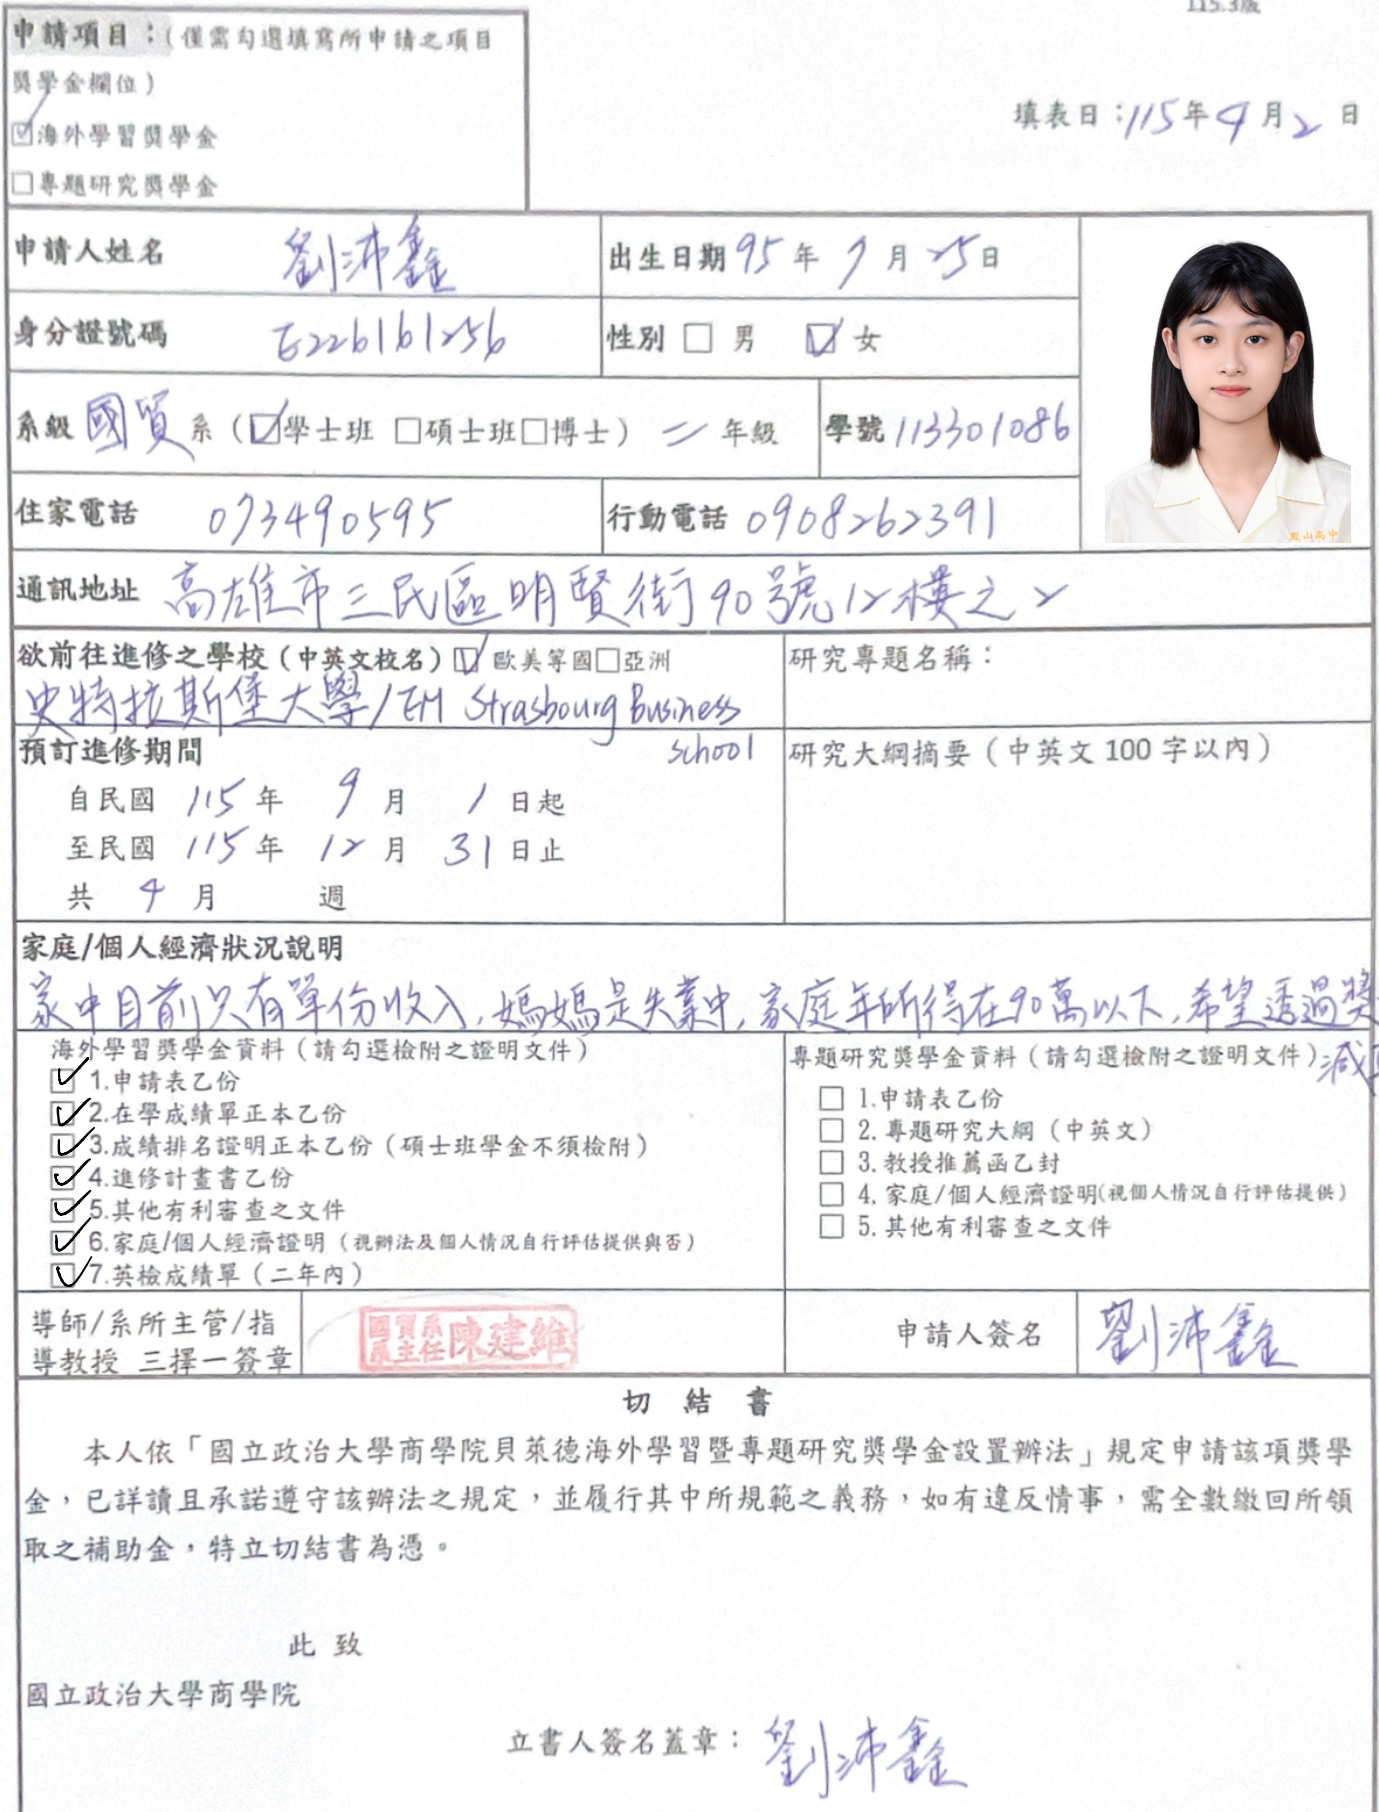 115.3版
申請項目：(僅需勾選填寫所申請之項目
獎學金欄位)
☑海外學習獎學金
□專題研究獎學金
填表日：115年4月2日
申請人姓名 劉沛鑫
出生日期 95年9月25日
身分證號碼 E226161256
性別 □ 男 ☑ 女
系級 國貿 系 (☑學士班 □碩士班□博士) 二 年級
學號 113301086
住家電話 073490595
行動電話 0908262391
鳳山高中
通訊地址 高雄市三民區明賢街90號12樓之2
欲前往進修之學校(中英文校名)☑ 歐美等國□亞洲
史特拉斯堡大學/EM Strasbourg Business
school
研究專題名稱：
預訂進修期間
自民國 115 年 9 月 1 日起
至民國 115 年 12 月 31 日止
共 4 月 週
研究大綱摘要（中英文 100 字以內）
家庭/個人經濟狀況說明
家中目前只有單份收入,媽媽是失業中,家庭年所得在90萬以下,希望透過獎
減
海外學習獎學金資料（請勾選檢附之證明文件）
☑ 1.申請表乙份
☑ 2.在學成績單正本乙份
☑ 3.成績排名證明正本乙份（碩士班學金不須檢附）
☑ 4.進修計畫書乙份
☑ 5.其他有利審查之文件
☑ 6.家庭/個人經濟證明（視辦法及個人情況自行評估提供與否）
☑ 7.英檢成績單（二年內）
專題研究獎學金資料（請勾選檢附之證明文件）
□ 1.申請表乙份
□ 2.專題研究大綱（中英文）
□ 3.教授推薦函乙封
□ 4.家庭/個人經濟證明(視個人情況自行評估提供)
□ 5.其他有利審查之文件
導師/系所主管/指
導教授 三擇一簽章
國貿系
系主任 陳建維
申請人簽名 劉沛鑫
切 結 書
本人依「國立政治大學商學院貝萊德海外學習暨專題研究獎學金設置辦法」規定申請該項獎學
金，已詳讀且承諾遵守該辦法之規定，並履行其中所規範之義務，如有違反情事，需全數繳回所領
取之補助金，特立切結書為憑。
此 致
國立政治大學商學院
立書人簽名蓋章：劉沛鑫